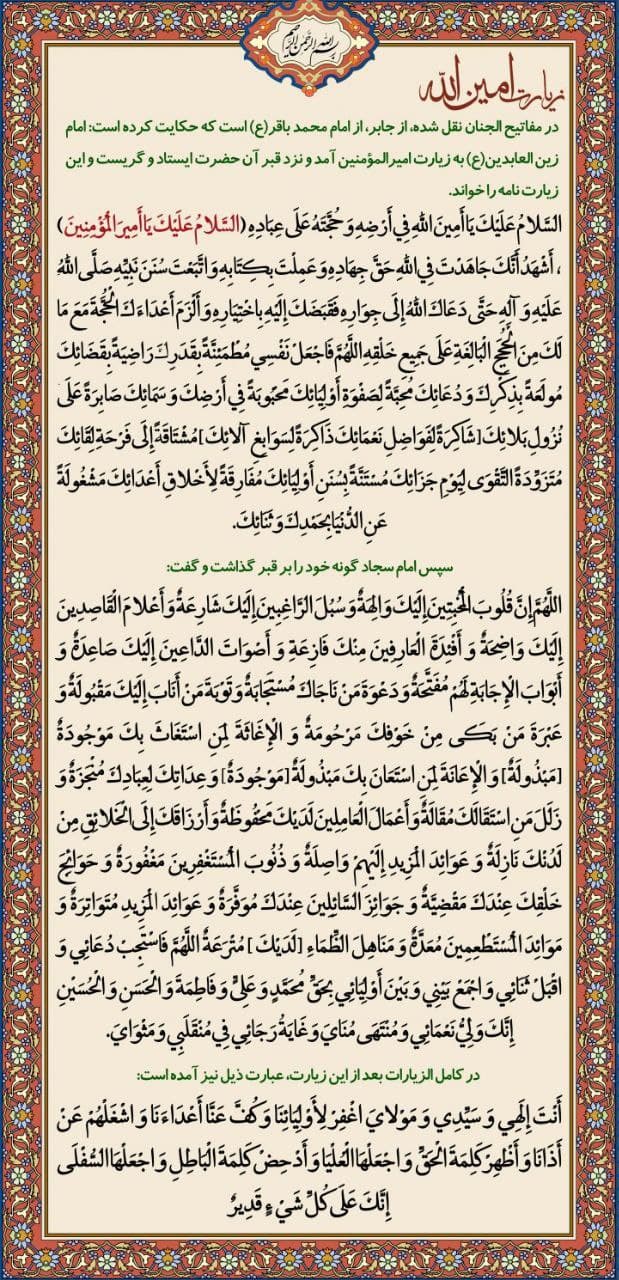 بسم الله الرحمن الرحیم
زیارت امین الله
در مفاتیح الجنان نقل شده، از جابر، از امام محمد باقر(ع) است که حکایت کرده است: امام
زین العابدین(ع) به زیارت امیرالمؤمنین آمد و نزد قبر آن حضرت ایستاد و گریست و این
زیارت نامه را خواند.
السَّلامُ عَلَیْكَ یَا أَمِینَ اللهِ فِي أَرْضِهِ وَ حُجَّتَهُ عَلَی عِبَادِهِ (السَّلامُ عَلَیْكَ یَا أَمِیرَ الْمُؤْمِنِینَ)
، أَشْهَدُ أَنَّكَ جَاهَدْتَ فِي اللهِ حَقَّ جِهَادِهِ وَ عَمِلْتَ بِكِتَابِهِ وَ اتَّبَعْتَ سُنَنَ نَبِیِّهِ صَلَّی اللهُ
عَلَیْهِ وَ آلِهِ حَتَّی دَعَاكَ اللهُ إِلَی جِوَارِهِ فَقَبَضَكَ إِلَیْهِ بِاخْتِیَارِهِ وَ أَلْزَمَ أَعْدَاءَكَ الْحُجَّةَ مَعَ مَا
لَكَ مِنَ الْحُجَجِ الْبَالِغَةِ عَلَی جَمِیعِ خَلْقِهِ اللَّهُمَّ فَاجْعَلْ نَفْسِي مُطْمَئِنَّةً بِقَدَرِكَ رَاضِیَةً بِقَضَائِكَ
مُولَعَةً بِذِكْرِكَ وَ دُعَائِكَ مُحِبَّةً لِصَفْوَةِ أَوْلِیَائِكَ مَحْبُوبَةً فِي أَرْضِكَ وَ سَمَائِكَ صَابِرَةً عَلَی
نُزُولِ بَلائِكَ [شَاكِرَةً لِفَوَاضِلِ نَعْمَائِكَ ذَاكِرَةً لِسَوَابِغِ آلائِكَ] مُشْتَاقَةً إِلَی فَرْحَةِ لِقَائِكَ
مُتَزَوِّدَةً التَّقْوَی لِیَوْمِ جَزَائِكَ مُسْتَنَّةً بِسُنَنِ أَوْلِیَائِكَ مُفَارِقَةً لِأَخْلاقِ أَعْدَائِكَ مَشْغُولَةً
عَنِ الدُّنْیَا بِحَمْدِكَ وَ ثَنَائِكَ.
سپس امام سجاد گونه خود را بر قبر گذاشت و گفت:
اللَّهُمَّ إِنَّ قُلُوبَ الْمُخْبِتِینَ إِلَیْكَ وَالِهَةٌ وَ سُبُلَ الرَّاغِبِینَ إِلَیْكَ شَارِعَةٌ وَ أَعْلامَ الْقَاصِدِینَ
إِلَیْكَ وَاضِحَةٌ وَ أَفْئِدَةَ الْعَارِفِینَ مِنْكَ فَازِعَةِ وَ أَصْوَاتَ الدَّاعِینَ إِلَیْكَ صَاعِدَةٌ وَ
أَبْوَابَ الْإِجَابَةِ لَهُمْ مُفَتَّحَةٌ وَ دَعْوَةَ مَنْ نَاجَاكَ مُسْتَجَابَةٌ وَ تَوْبَةَ مَنْ أَنَابَ إِلَیْكَ مَقْبُولَةٌ وَ
عَبْرَةَ مَنْ بَكَی مِنْ خَوْفِكَ مَرْحُومَةٌ وَ الْإِغَاثَةَ لِمَنِ اسْتَغَاثَ بِكَ مَوْجُودَةٌ
[مَبْذُولَةٌ] وَ الْإِعَانَةَ لِمَنِ اسْتَعَانَ بِكَ مَبْذُولَةٌ [مَوْجُودَةٌ] وَ عِدَاتِكَ لِعِبَادِكَ مُنْجَزَةٌ وَ
زَلَلَ مَنِ اسْتَقَالَكَ مُقَالَةٌ وَ أَعْمَالَ الْعَامِلِینَ لَدَیْكَ مَحْفُوظَةٌ وَ أَرْزَاقَكَ إِلَی الْخَلائِقِ مِنْ
لَدُنْكَ نَازِلَةٌ وَ عَوَائِدَ الْمَزِیدِ إِلَیْهِمْ وَاصِلَةٌ وَ ذُنُوبَ الْمُسْتَغْفِرِینَ مَغْفُورَةٌ وَ حَوَائِجَ
خَلْقِكَ عِنْدَكَ مَقْضِیَّةٌ وَ جَوَائِزَ السَّائِلِینَ عِنْدَكَ مُوَفَّرَةٌ وَ عَوَائِدَ الْمَزِیدِ مُتَوَاتِرَةٌ وَ
مَوَائِدَ الْمُسْتَطْعِمِینَ مُعَدَّةٌ وَ مَنَاهِلَ الظِّمَاءِ [لَدَیْكَ] مُتْرَعَةٌ اللَّهُمَّ فَاسْتَجِبْ دُعَائِي وَ
اقْبَلْ ثَنَائِي وَ اجْمَعْ بَیْنِي وَ بَیْنَ أَوْلِیَائِي بِحَقِّ مُحَمَّدٍ وَ عَلِيٍّ وَ فَاطِمَةَ وَ الْحَسَنِ وَ الْحُسَیْنِ
إِنَّكَ وَلِيُّ نَعْمَائِي وَ مُنْتَهَی مُنَايَ وَ غَایَةُ رَجَائِي فِي مُنْقَلَبِي وَ مَثْوَايَ.
در کامل الزیارات بعد از این زیارت، عبارت ذیل نیز آمده است:
أَنْتَ إِلَهِي وَ سَیِّدِي وَ مَوْلايَ اغْفِرْ لِأَوْلِیَائِنَا وَ كُفَّ عَنَّا أَعْدَاءَنَا وَ اشْغَلْهُمْ عَنْ
أَذَانَا وَ أَظْهِرْ كَلِمَةَ الْحَقِّ وَ اجْعَلْهَا الْعُلْیَا وَ أَدْحِضْ كَلِمَةَ الْبَاطِلِ وَ اجْعَلْهَا السُّفْلَی
إِنَّكَ عَلَی كُلِّ شَيْءٍ قَدِیرٌ